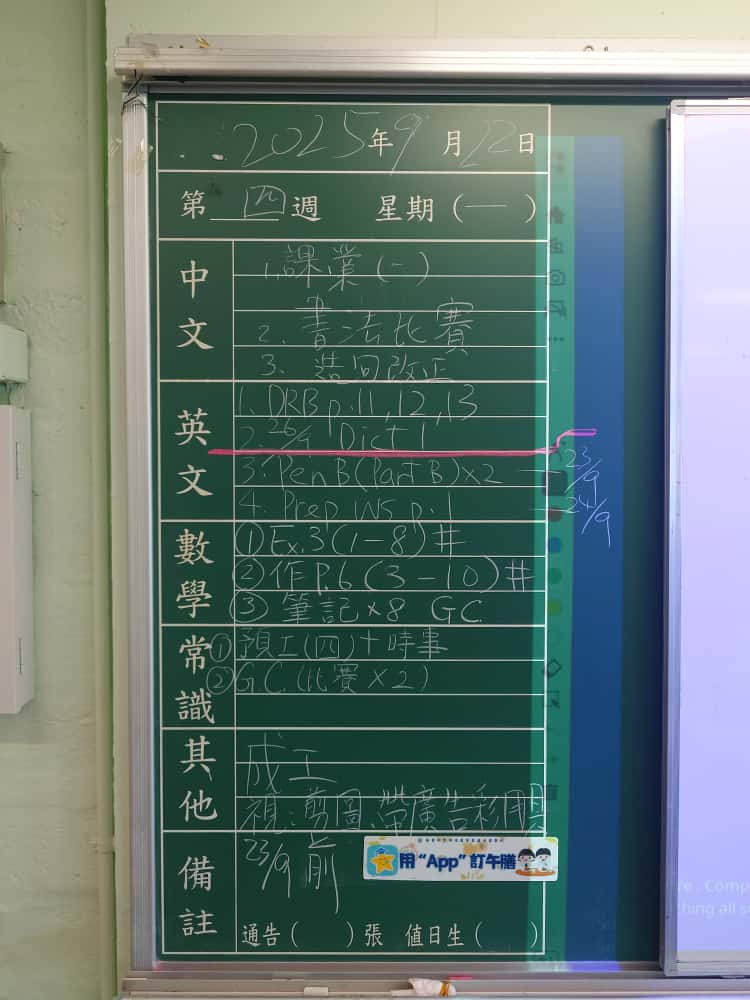 2025年9月22日
第四週 星期(一)
中文
1. 課業(一)
2. 書法比賽
3. 造句改正
英文
1. DRB p.11,12,13
2. 26/9 Dict 1
3. PenB(Part B)×2 — 23/9
4. Prep WS p.1 — 24/9
數學
① Ex.3(1-8)#
② 作P.6(3-10)#
③ 筆記×8 G.C.
常識
① 預工(四)+時事
② G.C.(比賽×2)
其他
成工
視:剪圖、帶廣告彩圖
備註
23/9前
用“App”訂午膳
通告( )張 值日生( )